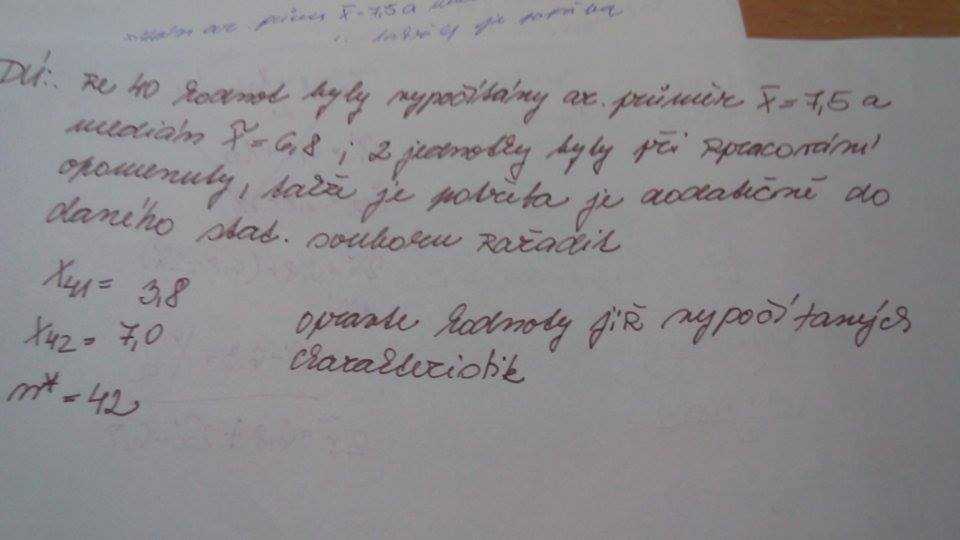 ar. průměr x̄ = 7,5 a
je potřeba
DÚ: ze 40 hodnot byly vypočítány ar. průměr x̄ = 7,5 a
medián x̃ = 6,8 ; 2 jednotky byly při zpracování
opomenuty, takže je potřeba je dodatičně do
daného stat. souboru zařadit
x41 = 3,8
x42 = 7,0
opravte hodnoty již vypočítaných
charakteristik
n* = 42